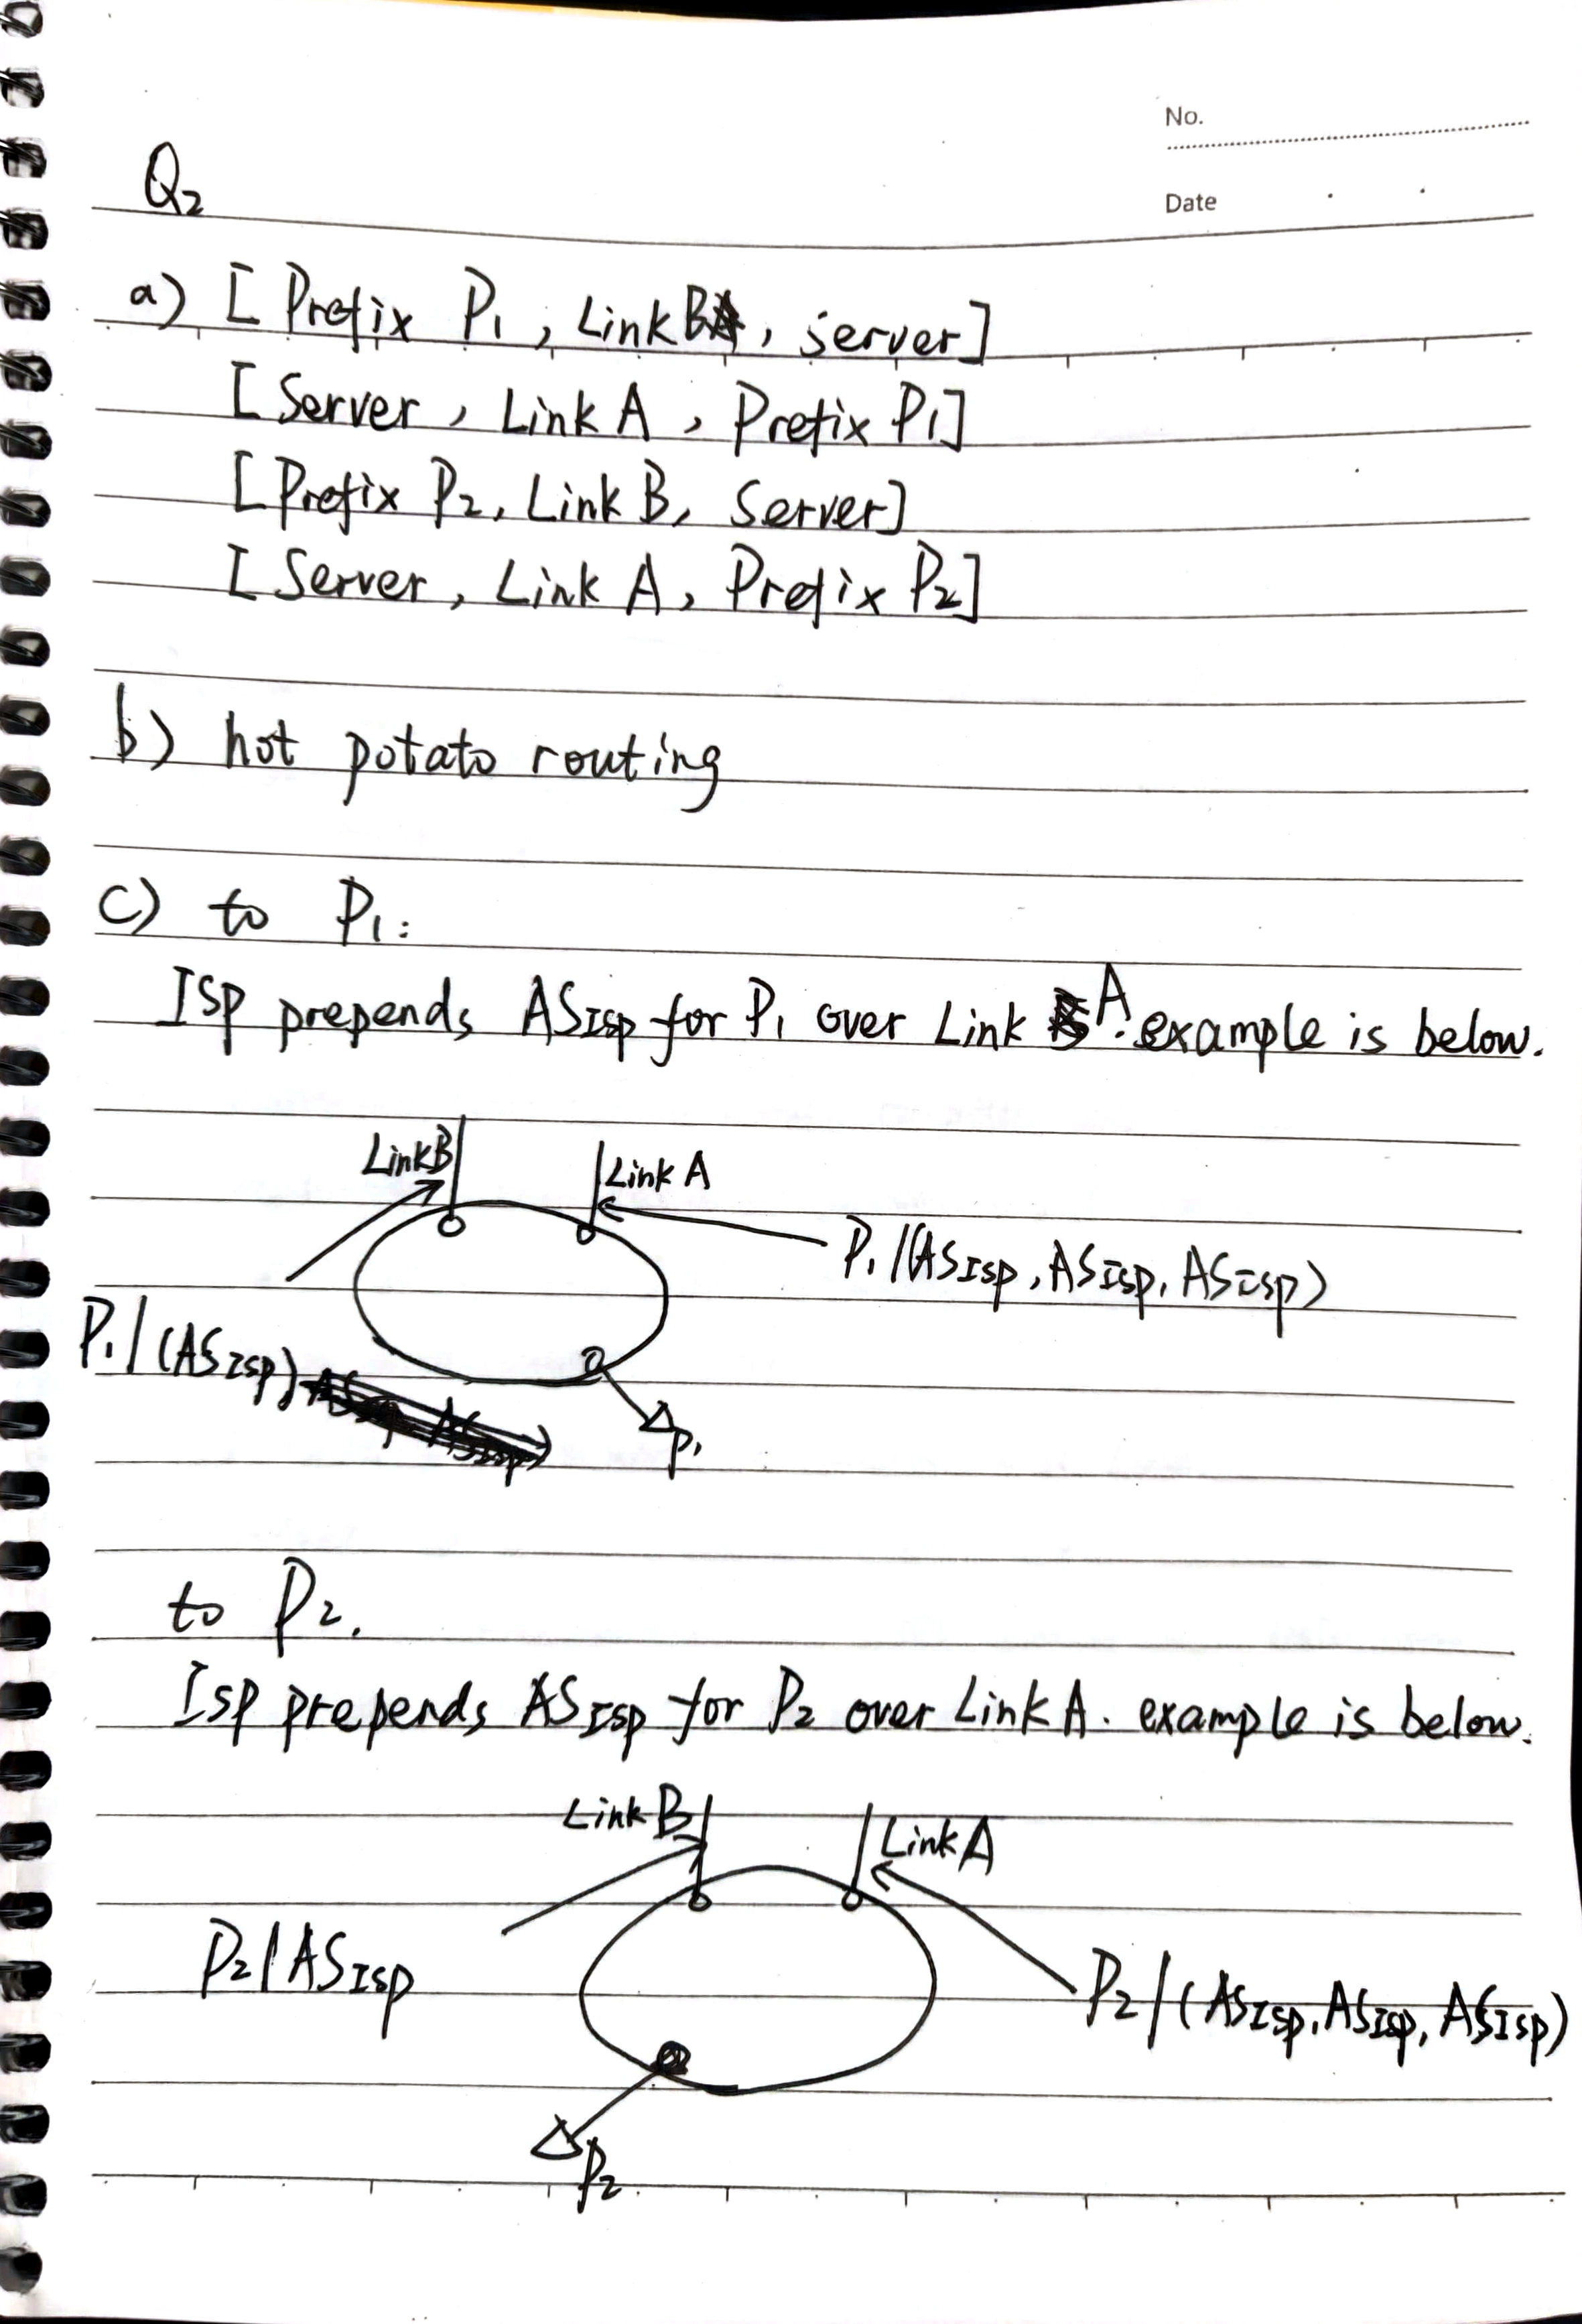 No.
Date
Q2
a) [Prefix P1, Link B, server]
[Server, Link A, Prefix P1]
[Prefix P2, Link B, Server]
[Server, Link A, Prefix P2]
b) hot potato routing
c) to P1:
Isp prepends ASIsp for P1 over Link A. example is below.
Link B
Link A
P1/(ASIsp, ASIsp, ASIsp)
P1/(ASIsp)
P1
to P2.
Isp prepends ASIsp for P2 over Link A. example is below.
Link B
Link A
P2/ASIsp
P2/(ASIsp, ASIsp, ASIsp)
P2